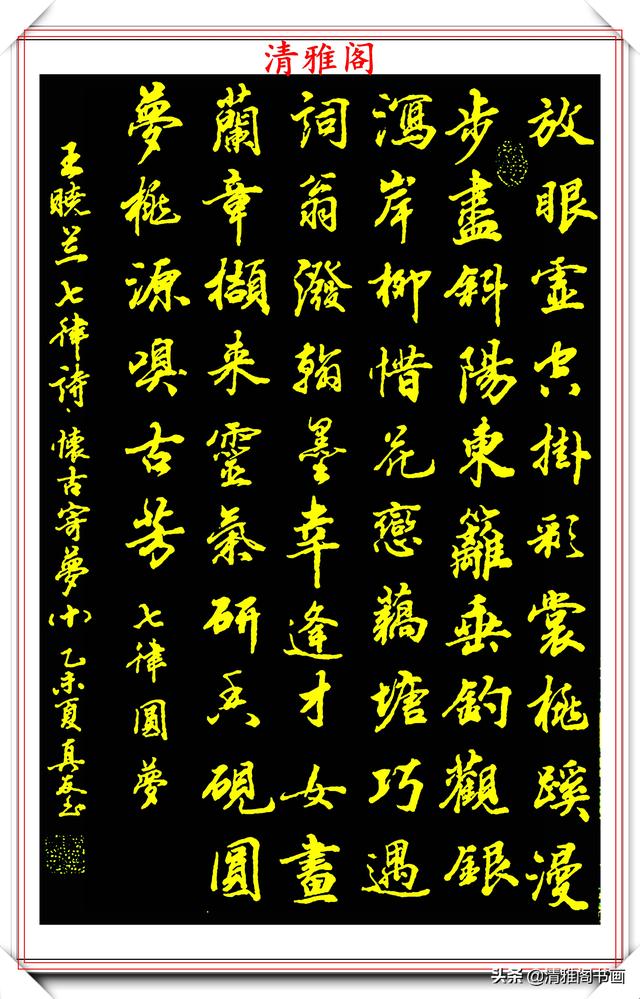 清雅阁
放眼虚空掛彩裳桃蹊漫
步盡斜陽東籬垂釣觀銀
瀉岸柳惜花戀藕塘巧遇
詞翁潑翰墨幸逢才女畫
蘭章擷来靈氣研香硯圓
夢桃源嗅古芳 七律圓夢
王曉兰七律詩、懷古寄夢(十)乙未夏真友书
头条 @清雅阁书画